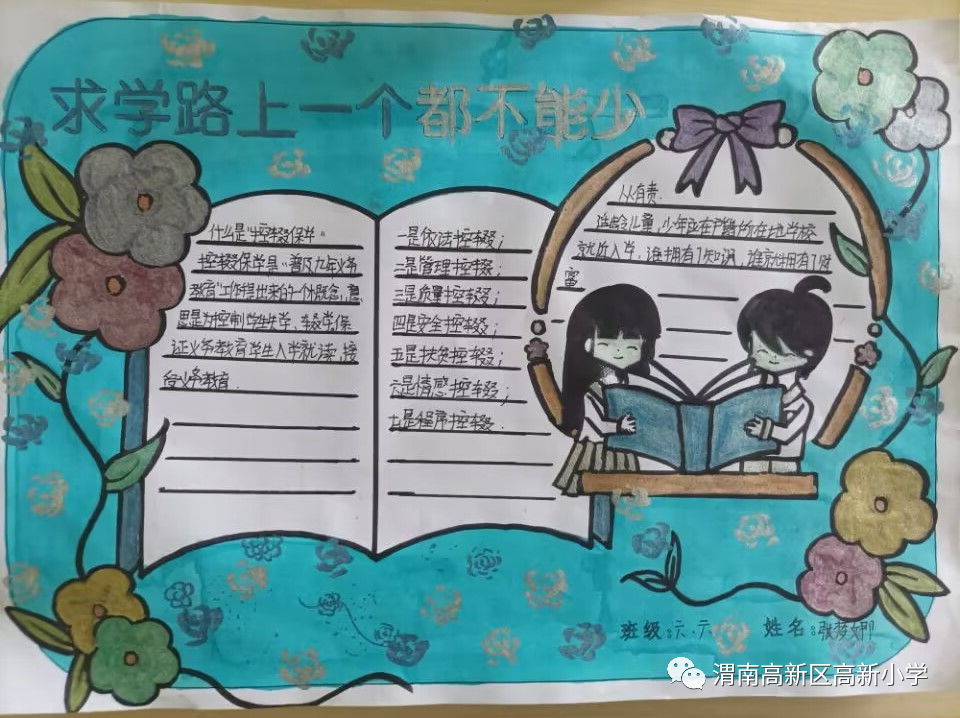 求学路上一个都不能少
什么是"控辍保学"
控辍保学是"普及九年义务
教育"工作提出来的一个概念,意
思是为控制学生失学、辍学,保
证义务教育学生入学就读,接
受义务教育.
一是依法控辍;
二是管理控辍;
三是质量控辍;
四是安全控辍;
五是扶贫控辍;
六是情感控辍;
七是程序控辍.
人人有责.
适龄儿童,少年应在户籍所在地学校
就近入学,谁拥有了知识,谁就拥有了财
富
班级:六·六
姓名:张梦娜
渭南高新区高新小学